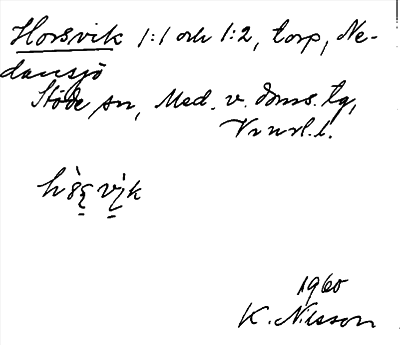 Horsvik 1:1 och 1:2, torp, Ne-
dansjö
Stöde sn, Med. v. doms. tg,
Vnorl. l.
1960
K. Nilsson